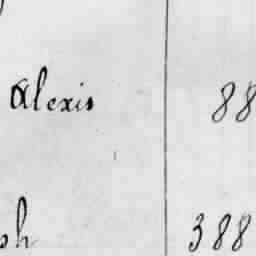 Alexis 88
ph 388